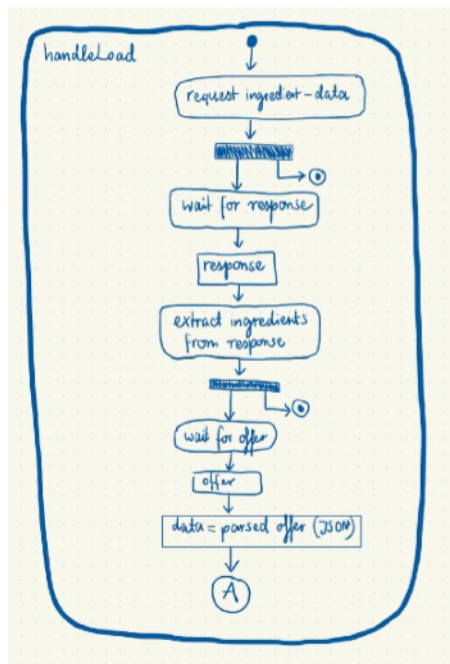 handleLoad
request ingredient-data
wait for response
response
extract ingredients
from response
wait for offer
offer
data = parsed offer (JSON)
A